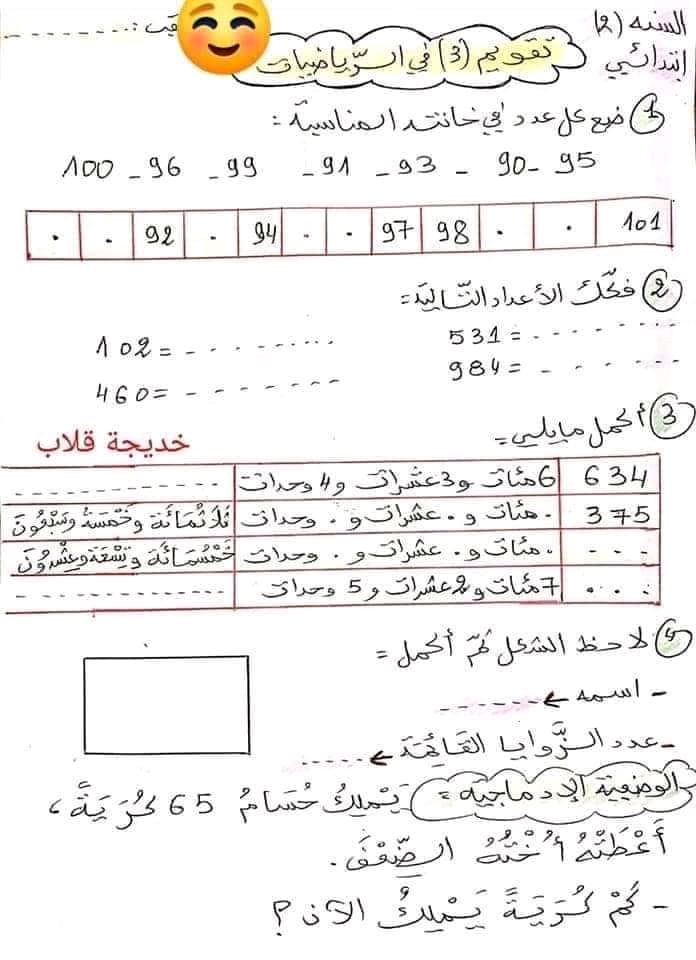 السنة (2)
إبتدائي
تقويم (3) في الرّياضيات
1 ضع كل عدد في خانته المناسبة :
100 - 96 - 99 - 91 - 93 - 90 - 95
. . 92 . 94 . . 97 98 . . 101
2 فكّك الأعداد التّالية =
531 = - - - - - - - -
102 = - - - - - - - -
984 = - - - - - - -
460 = - - - - - - - -
3 أكمل مايلي =
خديجة قلاب
634 6 مئات و 3 عشرات و 4 وحدات - - - - - - - - - - - - -
375 . مئات و . عشرات و . وحدات ثَلَاثُمَائَة وَخَمْسَةُ وَسَبْعُونَ
- - - . مئات و . عشرات و . وحدات خَمْسُمَائَة وَتِسْعَة وَعِشْرُونَ
. . . 7 مئات و 2 عشرات و 5 وحدات - - - - - - - - - - - - -
4 لاحظ الشكل ثمّ أكمل =
- اسمه ← - - - - - -
- عدد الزَّوايا القَائِمَة ← - - - - -
الوضعية الإدماجية = يَمْلِكُ حُسَامُ 65 كُرَيَةً ،
أَعْطَتْهُ أُخْتُهُ الضِّعْفَ .
- كَمْ كُرَيَةً يَمْلِكُ الآن ؟